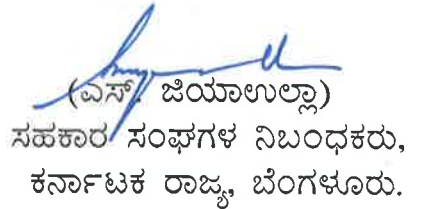 (ಎಸ್. ಜಿಯಾಉಲ್ಲಾ)
ಸಹಕಾರ ಸಂಘಗಳ ನಿಬಂಧಕರು,
ಕರ್ನಾಟಕ ರಾಜ್ಯ, ಬೆಂಗಳೂರು.